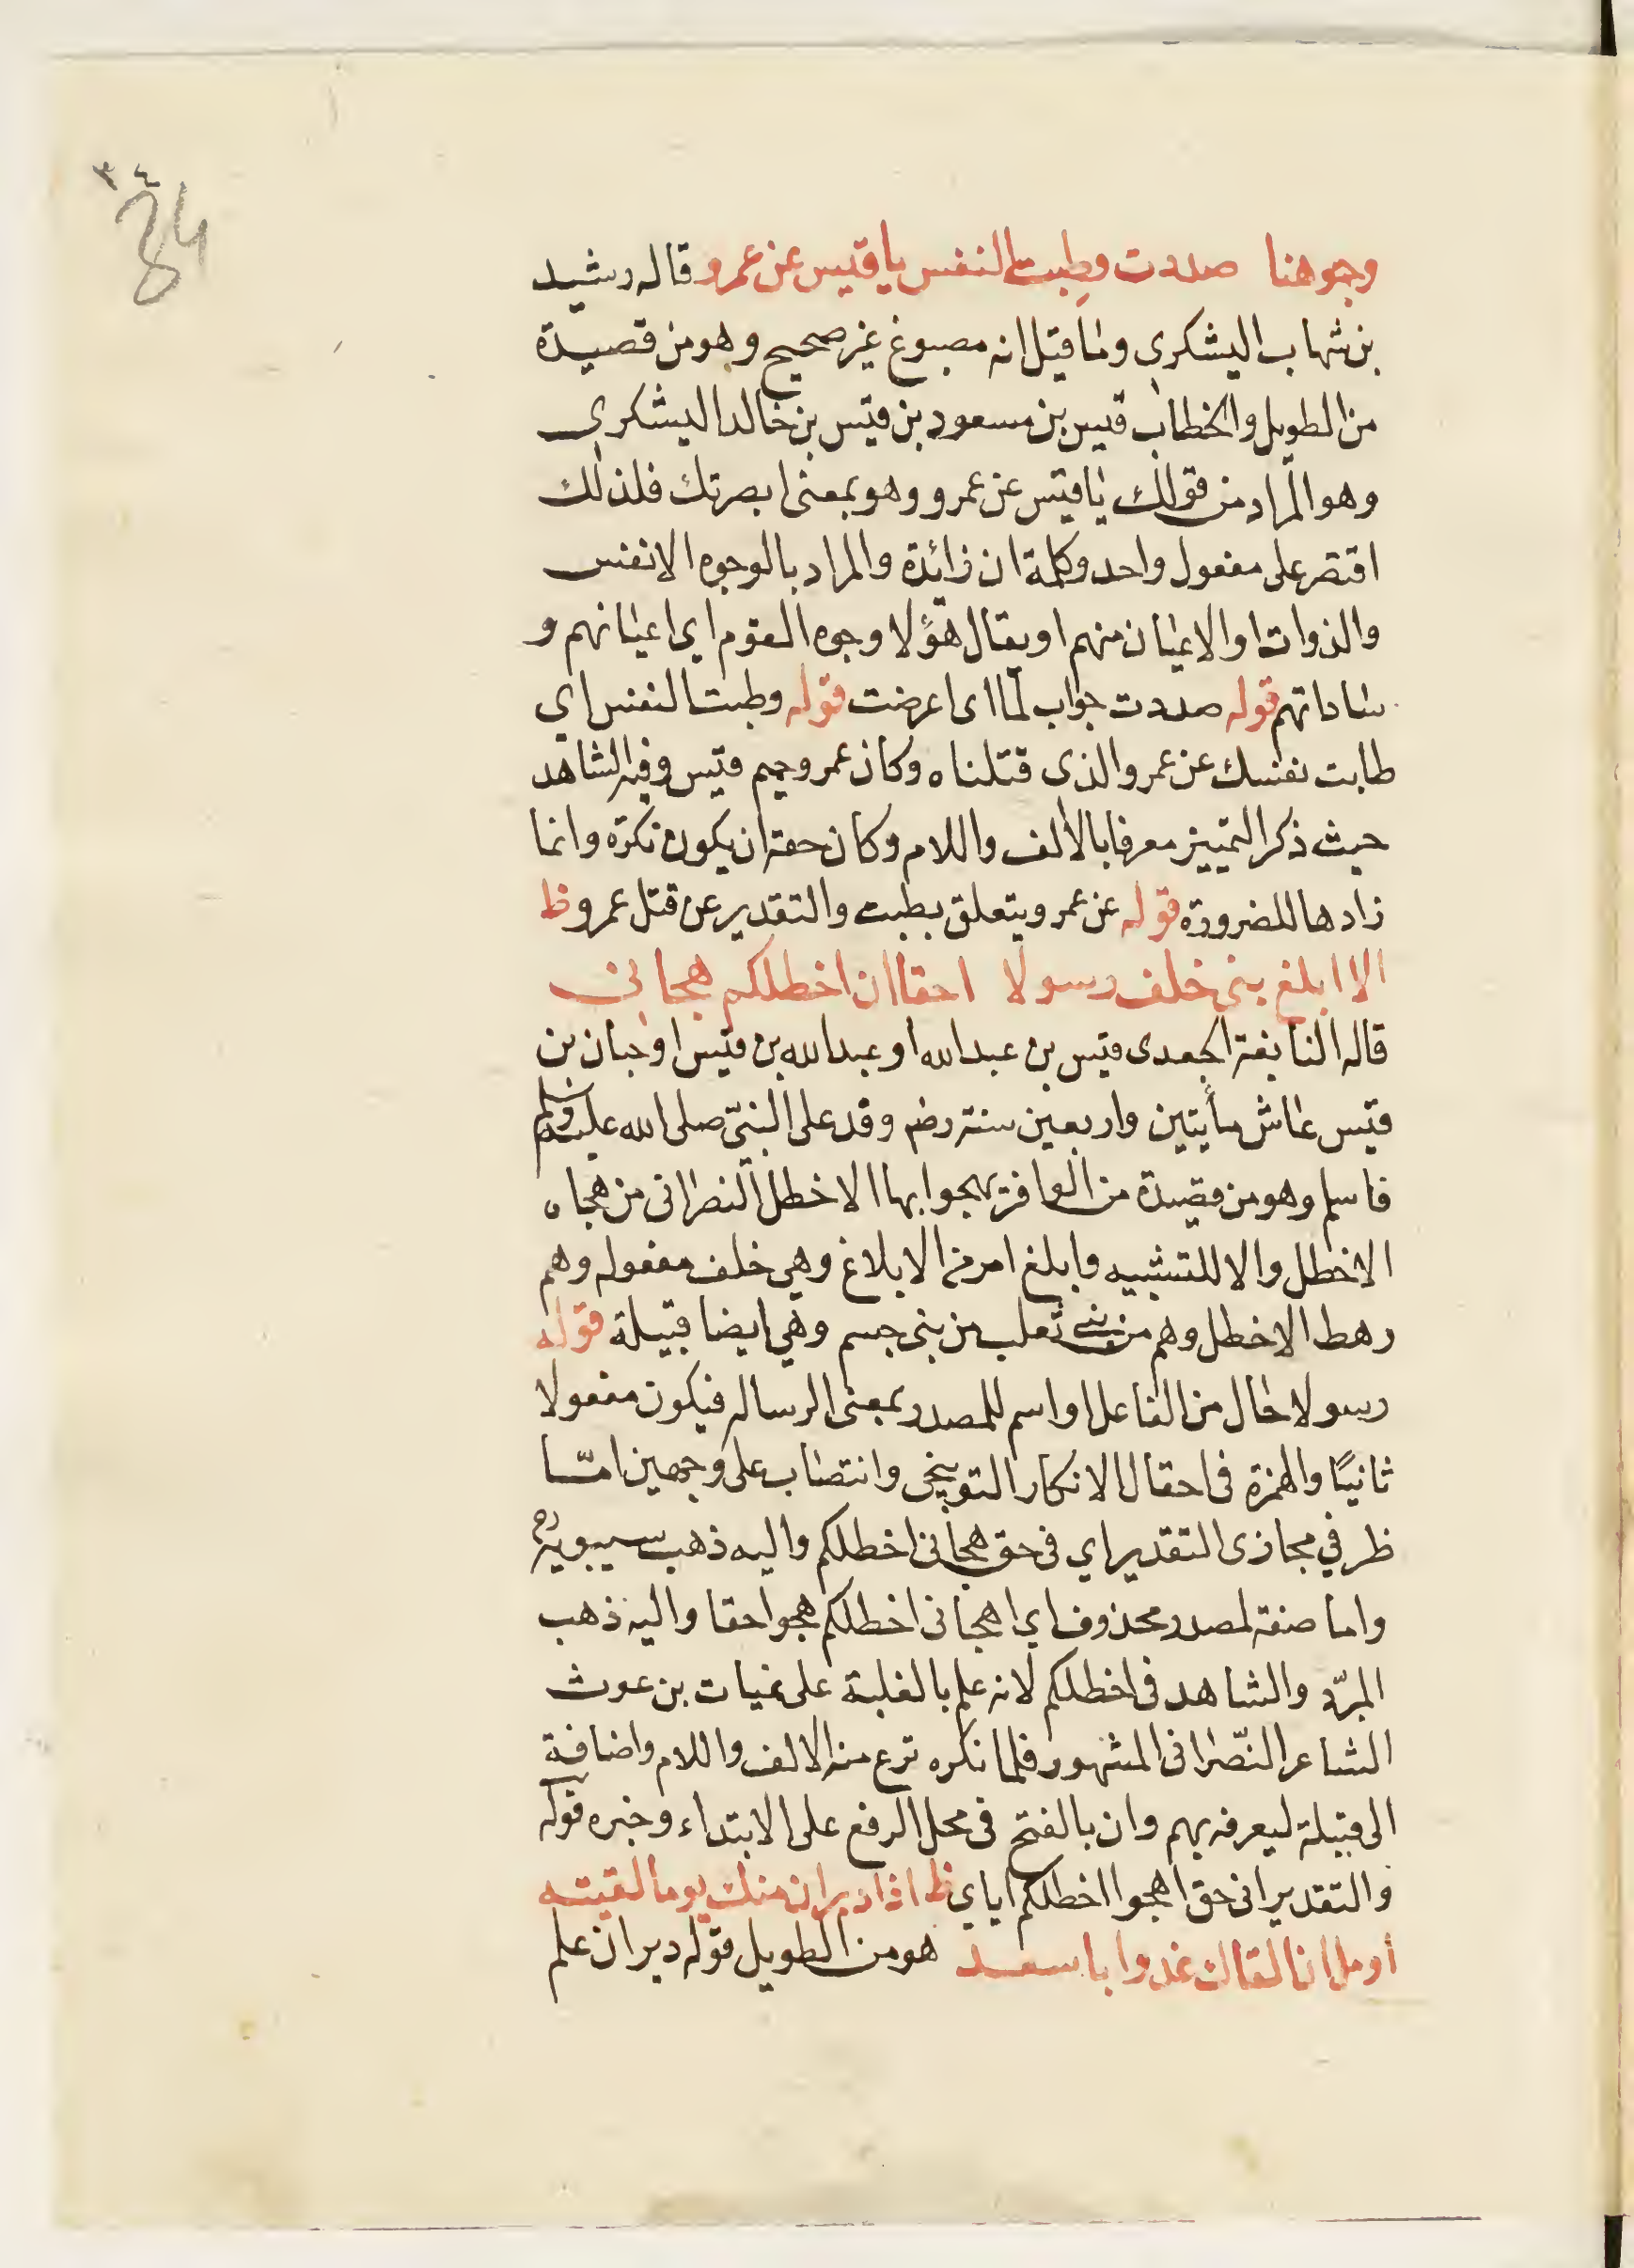 ٣٤
34
وجوهنا صددت وطبت النفس يا قيس عن عمرو قاله رشيد
بن شهاب اليشكري وما قيل انه مصبوغ غير صحيح وهو من قصيدة
من الطويل والخطاب قيس بن مسعود بن قيس بن خالد اليشكري
وهو المراد من قولك يا قيس عن عمرو وهو بمعنى ابصرتك فلذلك
اقتصر على مفعول واحد وكلمة ان زائدة والمراد بالوجوه الانفس
والذوات او الاعيان منهم او يقال هؤلا وجوه القوم اي اعيانهم و
ساداتهم قوله صددت جواب لما اى اعرضت قوله وطبت النفس اي
طابت نفسك عن عمرو الذى قتلناه وكان عمرو حميم قيس وفيه الشاهد
حيث ذكر التمييز معرفا بالالف واللام وكان حقه ان يكون نكرة وانما
زادها للضرورة قوله عن عمرو يتعلق بطبت والتقدير عن قتل عمرو ظ
الا ابلغ بنى خلف رسولا احقا ان اخطلكم هجانى
قاله النابغة الجعدى قيس بن عبد الله او عبد الله بن قيس او حبان بن
قيس عاش مأيتين واربعين سنة رضم وفد على النبيّ صلى الله عليه وسلم
فاسلم وهو من قصيدة من الوافر يهجوا بها الاخطل النصرانى من هجاه
الاخطل والا للتنبيه وابلغ امر من الابلاغ وهي خلف مفعوله وهم
رهط الاخطل وهم من بنى تعلب من بنى جسم وهي ايضا قبيلة قوله
رسولا حال من الفاعل او اسم للمصدر بمعنى الرساله فيكون مفعولا
ثانيًا والهمزة فى احقا للانكار التوبيخى وانتصاب على وجهين امّا
ظرفي مجازى التقدير اي فى حق هجانى اخطلكم واليه ذهب سيبويه ره
واما صفة لمصدر محذوف اي اهجانى اخطلكم هجوا حقا واليه ذهب
المبرّد والشاهد فى اخطلكم لانه علم بالغلبة على غيات بن عوث
الشاعر النّصرانى المشهور فلما نكره نزع منه الالف واللام واضافة
الى قبيلة ليعرفه بهم وان بالفتح فى محل الرفع على الابتداء وخبره قوله
والتقدير افى حق اهجوا اخطلكم اياي ظ اذا دبران منك يوما لقيته
أومل ان القاك غدوا باسعد هو من الطويل قوله دبران علم